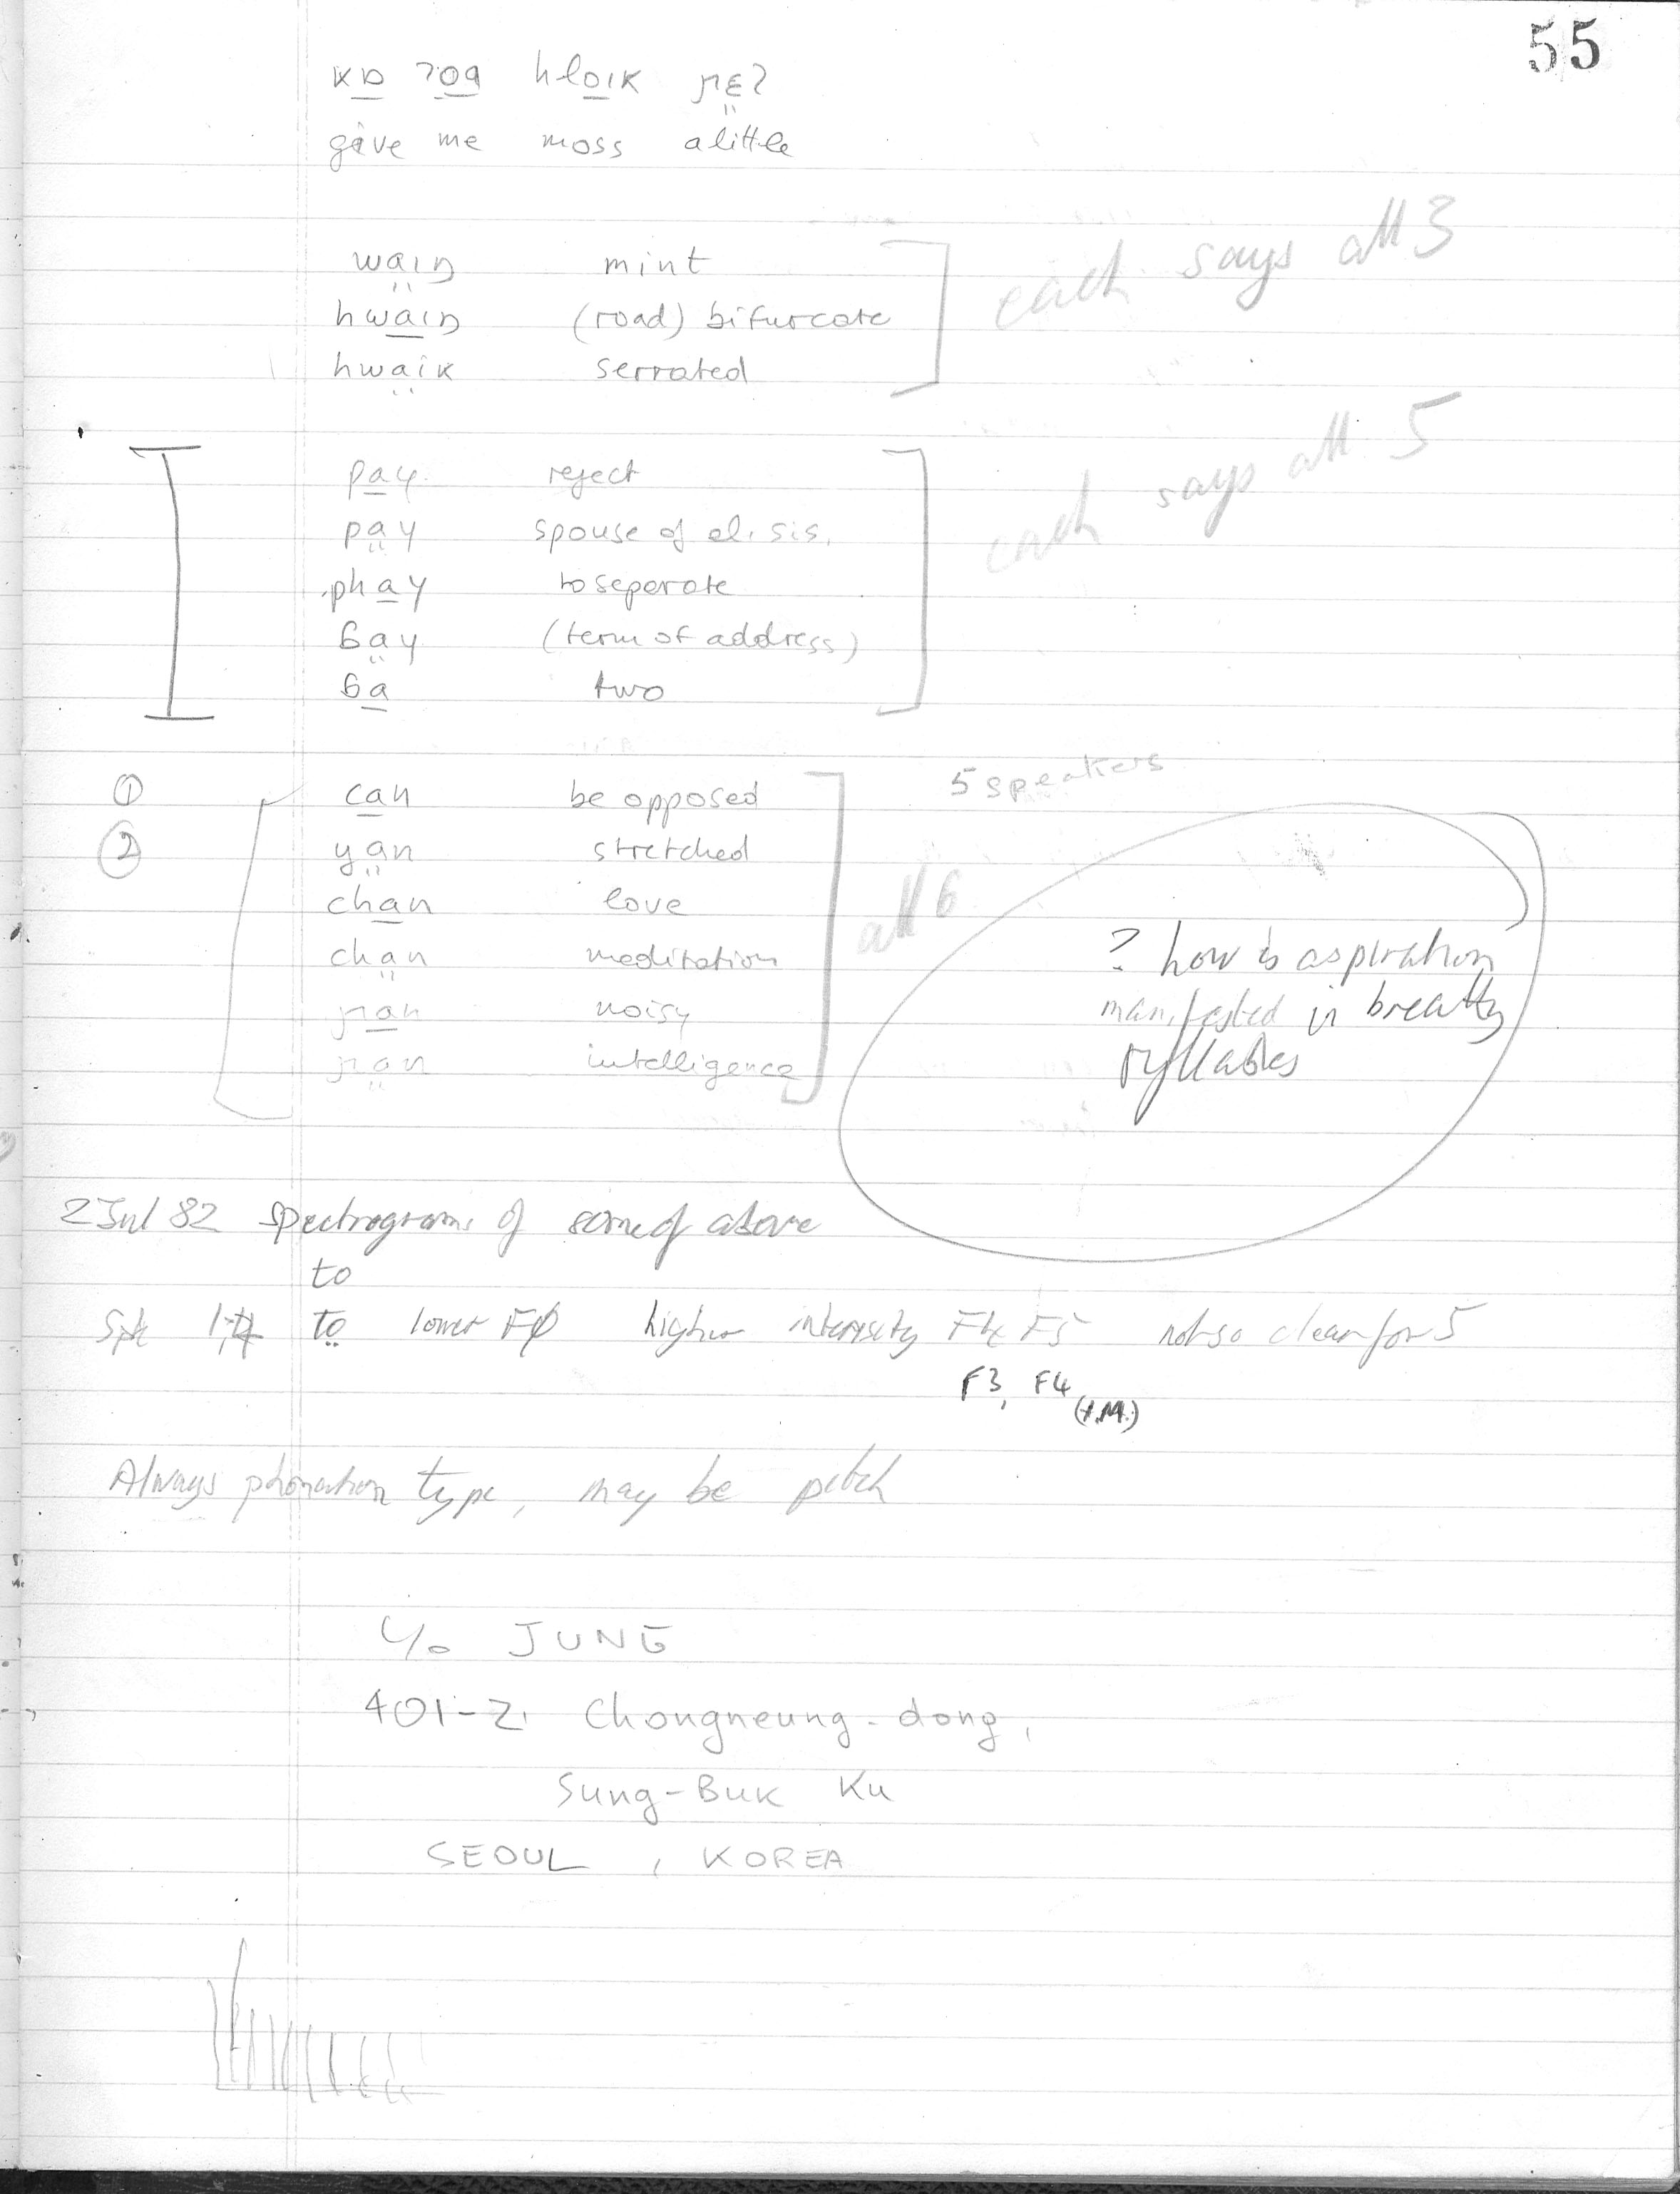 55
kɒ̱ ʔo̱a̱ hlo̱ɪk ɲɛ̤ʔ
give me moss a little
wa̤ɪŋ mint
each says all 3
hwa̱ɪŋ (road) bifurcate
hwa̤ik serrated
pa̱y reject
each says all 5
pa̤y spouse of el. sis.
pha̱y to seperate
ɓa̤y (term of address)
ɓa̱ two
5 speakers
① ca̱n be opposed
② ya̤n stretched
cha̱n love
all 6
cha̤n meditation
ɲa̱n noisy
ɲa̤n intelligence
? how is aspiration
manifested in breathy
syllables
2 Jul 82 Spectrograms of some of above
to
Spk 1,4 to̤ lower FØ higher intensity F4 F5 not so clear for 5
F3, F4 (I.M.)
Always phonation type, may be pitch
C/o JUNG
401-2, Chongneung-dong,
Sung-Buk Ku
SEOUL, KOREA